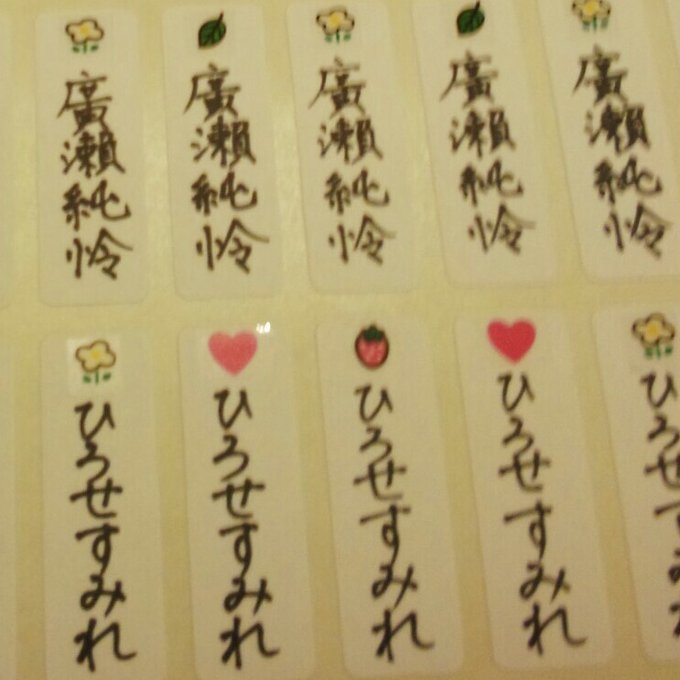 廣瀨純怜
廣瀨純怜
廣瀨純怜
廣瀨純怜
廣瀨純怜
ひろせすみれ
ひろせすみれ
ひろせすみれ
ひろせすみれ
ひろせすみれ